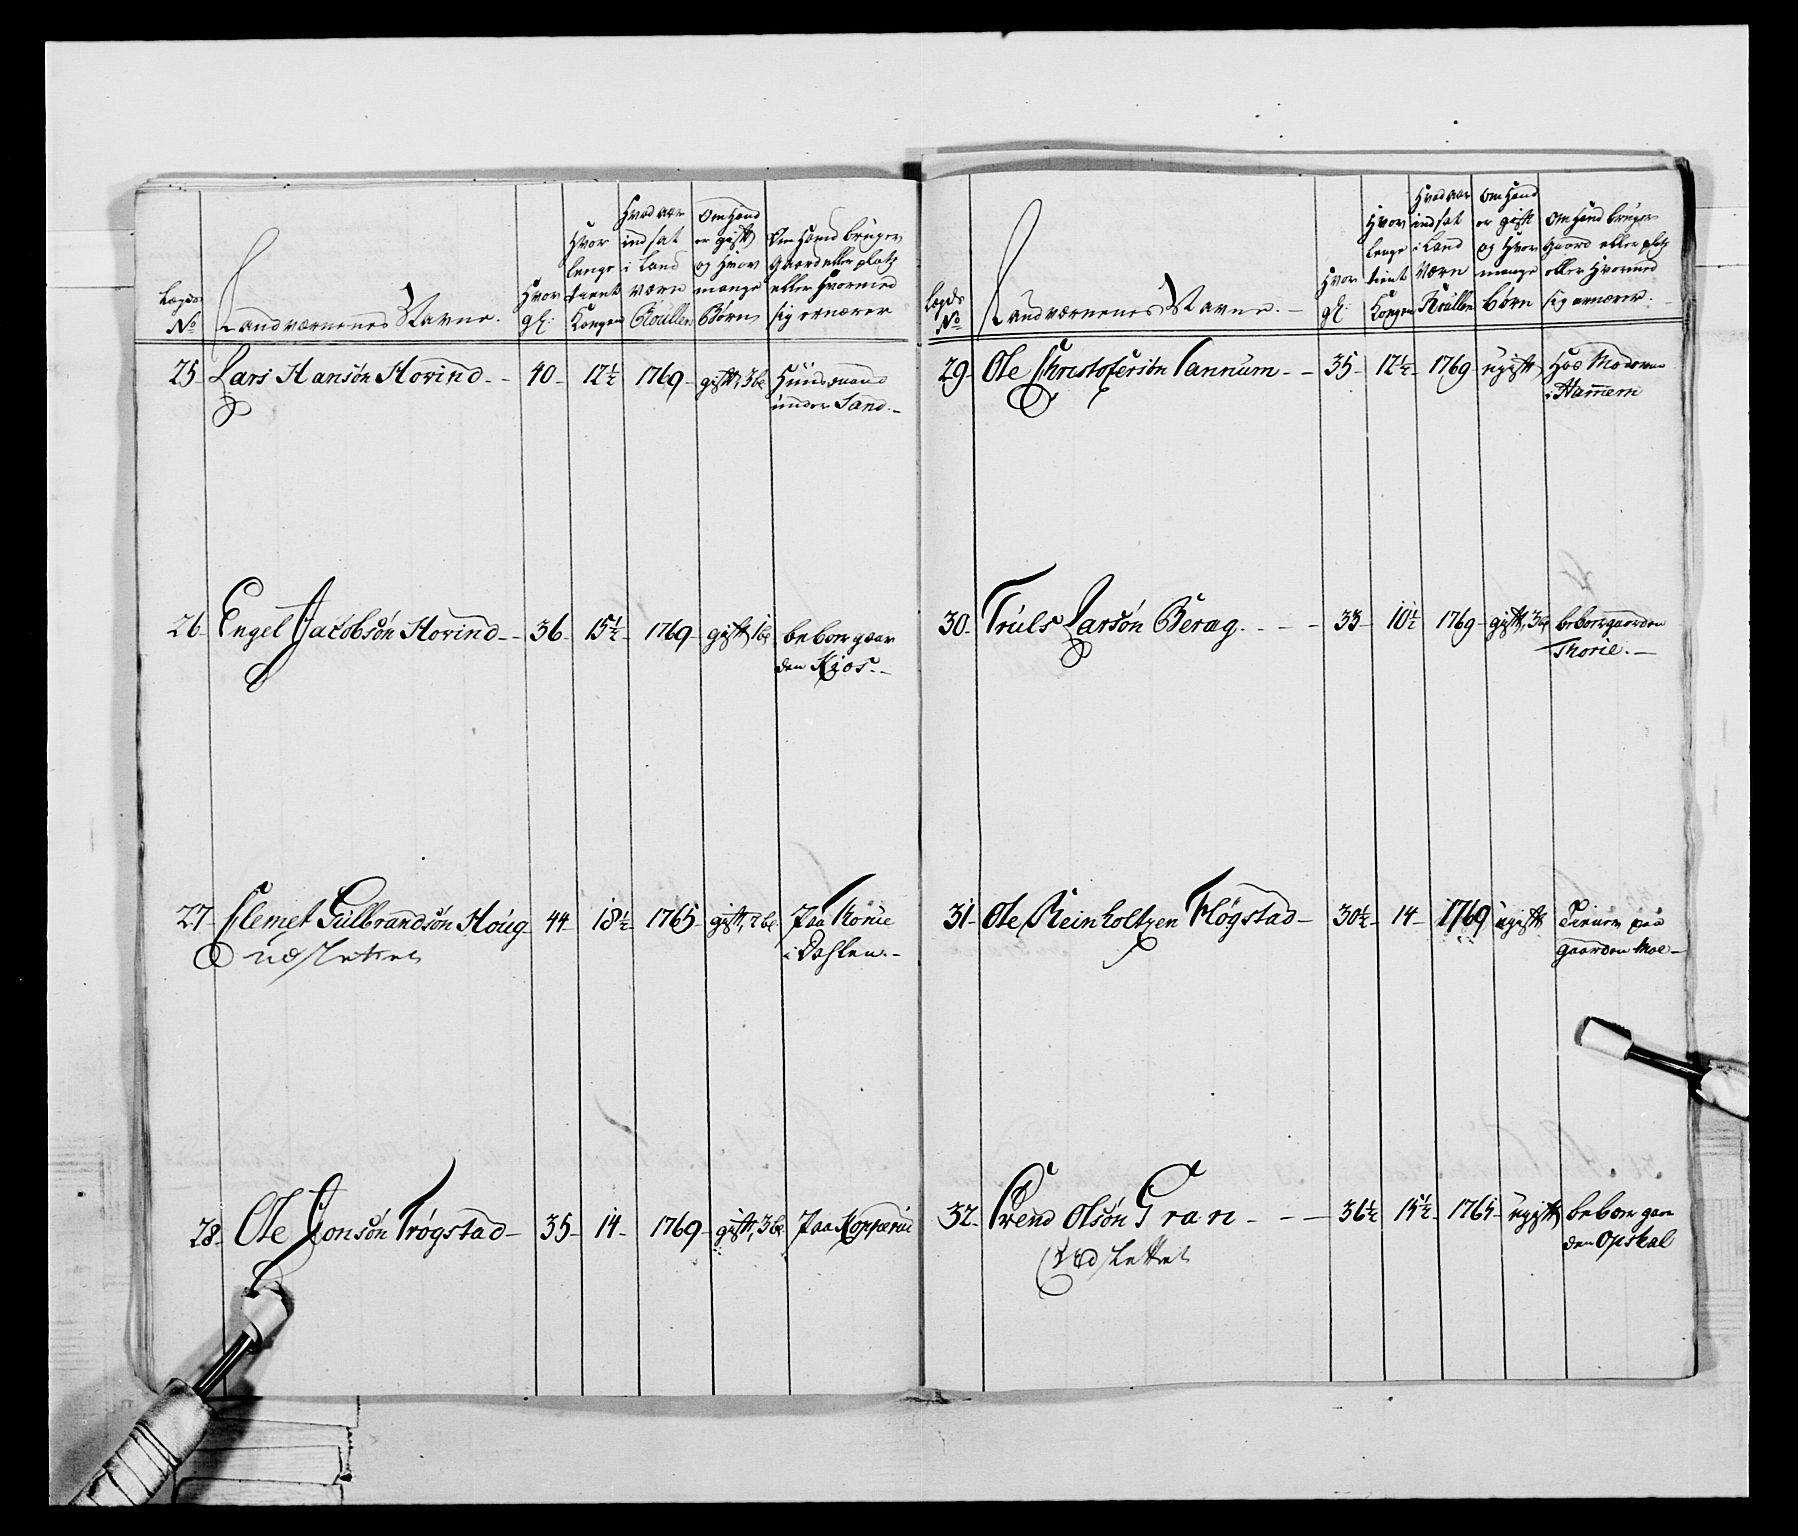 Lægds No
Landværnenes Navne.
Hvor gl:
Hvor lenge tient Kongen
Hvad aar indsat i Land værn Roullen
Om Hand er gift og Hvor mange Børn
Om Hand bruger Gaard eller platz eller Hvormed sig ernærer
25 Lars Hansøn Hovind. - 40 - 12½ 1769 - gift, 3 be Huusmand
under Sand. -
26 Engel Jacobsøn Hovind - - 36 - 15½ - 1769 - gift, 1 be beboer gaar
den Kjos. -
27 Clemet Gulbrandsøn Houg 44 - 18½ - 1765 - gift, 2 be Paa
udslettet i
28 Ole Jonsøn Trøgstad - 35 - 14 - 1769 - gift, 3 be Paa Kopperud
Lægds No
Landværnenes Navne. -
Hvor gl:
Hvor lenge tient Kongen
Hvad aar indsat i Land Værn Roullen
Om Hand er gift og Hvor mange Børn
Om Hand bruger Gaard eller platz eller Hvormed sig ernærer. -
29 - Ole Christofersøn Tannum - - 35 - 12½ - 1769 ugift Hos Moderen
i Hamern
30 - Truls Larsøn Berag. - - - 33 - 10½ 1769 - gift, 3 be beboer gaarden
Thorie. -
31 - Ole Reinholtzen Fløgstad - 30½ - 14 - 1769 ugift Tiener paa
gaarden Moe -
32 - Svend Olsøn Gran - - - 36½ 15½ - 1765 - ugift beboer gaar
Udslettet den Opskal